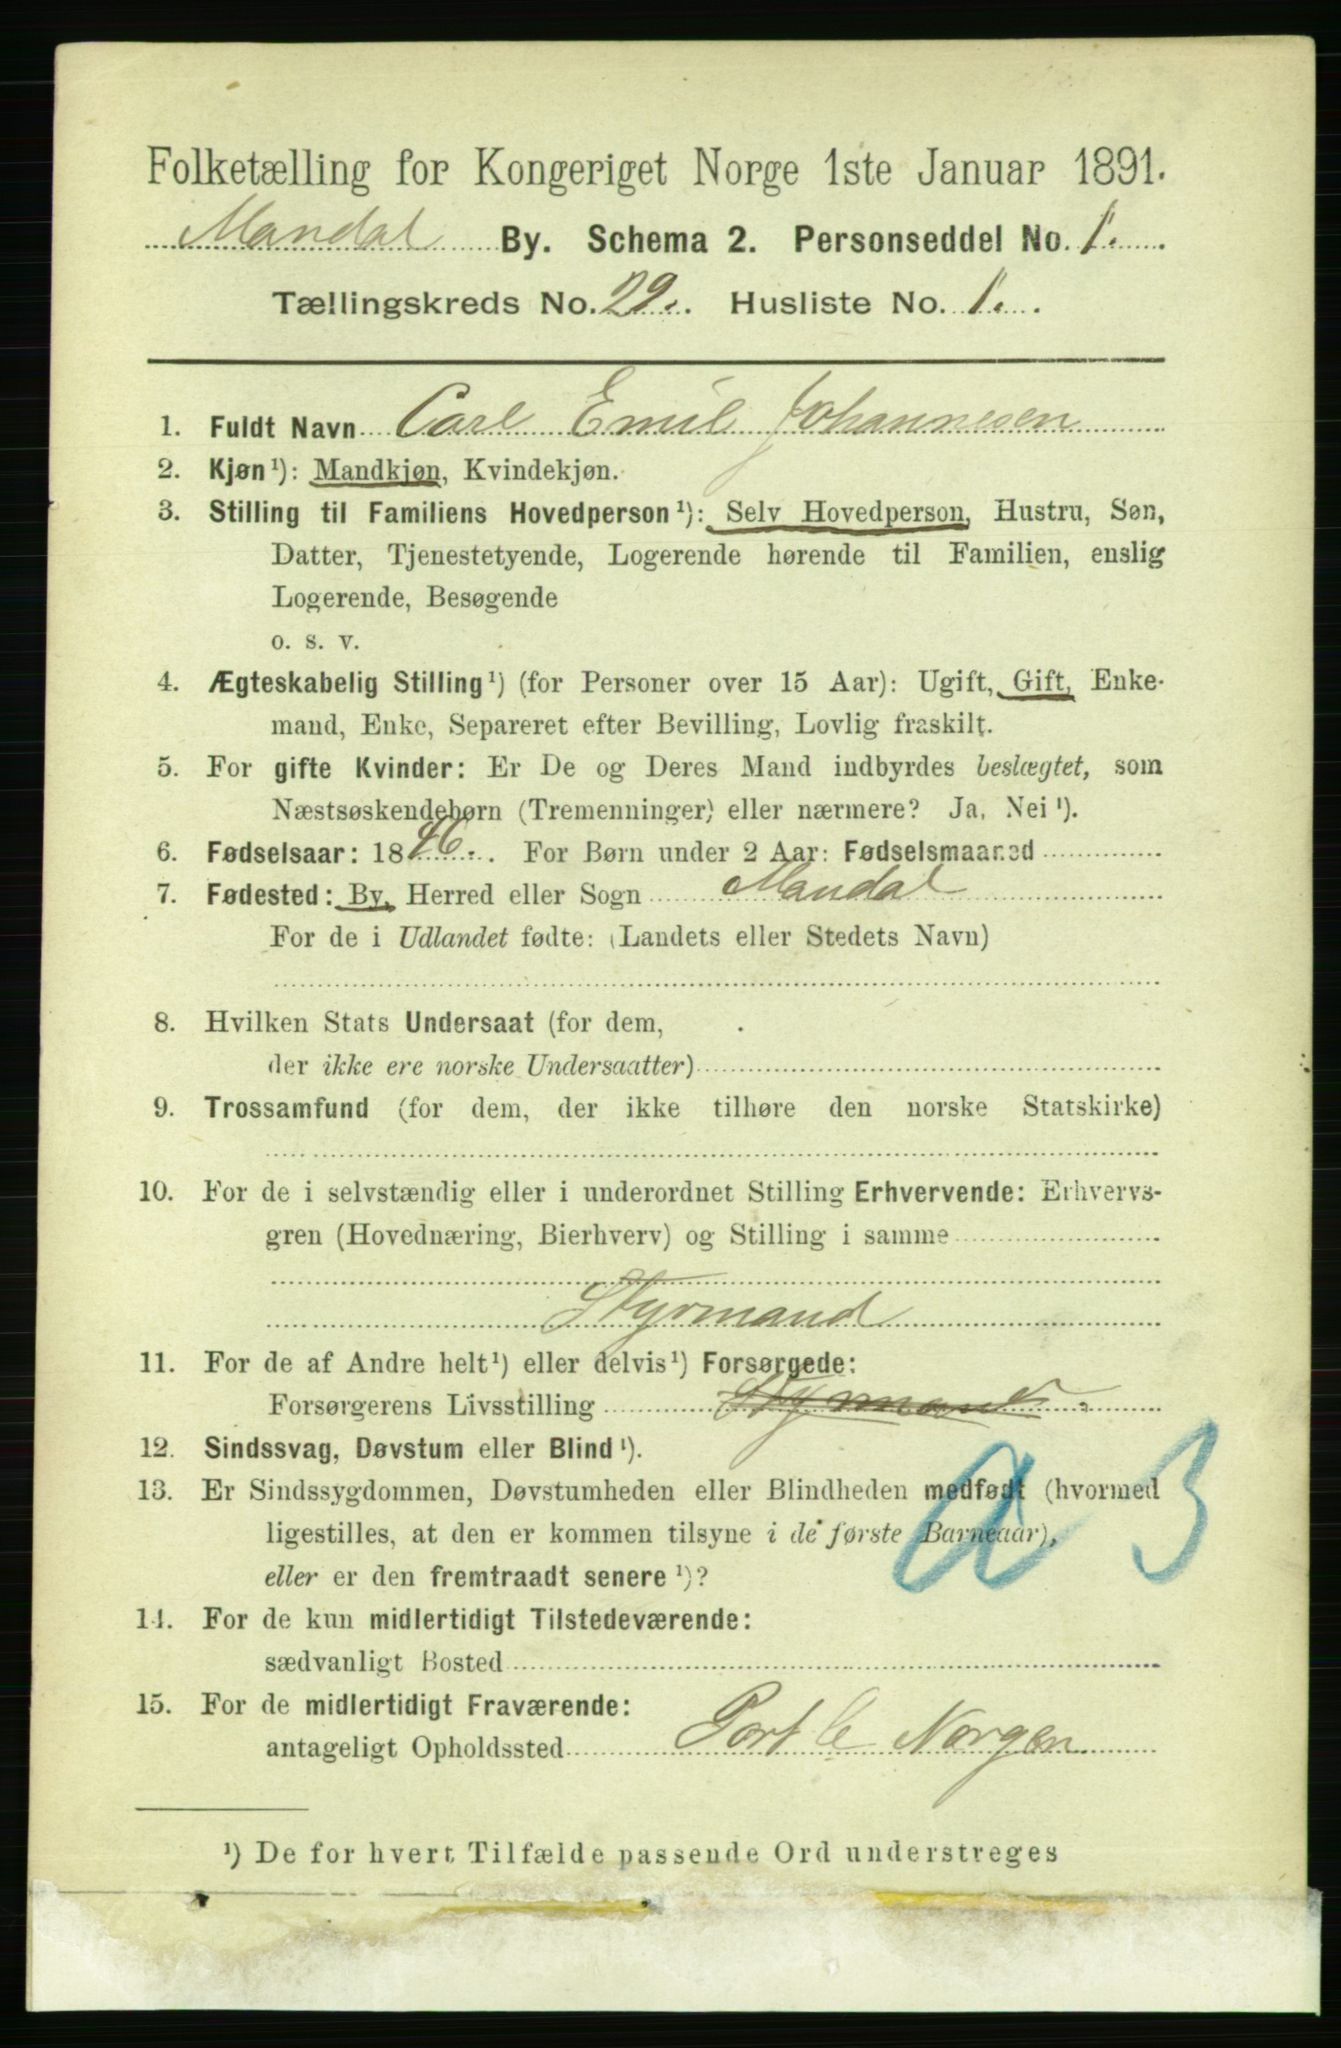 Folketælling for Kongeriget Norge 1ste Januar 1891.
Mandal By. Schema 2. Personseddel No. 1.
Tællingskreds No. 29. Husliste No. 1.
1. Fuldt Navn Carl Emil Johannesen
2. Kjøn¹): Mandkjøn, Kvindekjøn.
3. Stilling til Familiens Hovedperson¹): Selv Hovedperson, Hustru, Søn,
Datter, Tjenestetyende, Logerende hørende til Familien, enslig
Logerende, Besøgende
o. s. v.
4. Ægteskabelig Stilling¹) (for Personer over 15 Aar): Ugift, Gift, Enke-
mand, Enke, Separeret efter Bevilling, Lovlig fraskilt.
5. For gifte Kvinder: Er De og Deres Mand indbyrdes beslægtet, som
Næstsøskendebørn (Tremenninger) eller nærmere? Ja, Nei¹).
6. Fødselsaar: 1846. For Børn under 2 Aar: Fødselsmaaned
7. Fødested: By, Herred eller Sogn Mandal
For de i Udlandet fødte: (Landets eller Stedets Navn)
8. Hvilken Stats Undersaat (for dem,
der ikke ere norske Undersaatter)
9. Trossamfund (for dem, der ikke tilhøre den norske Statskirke)
10. For de i selvstændig eller i underordnet Stilling Erhvervende: Erhvervs-
gren (Hovednæring, Bierhverv) og Stilling i samme
Styrmand
11. For de af Andre helt¹) eller delvis¹) Forsørgede:
Forsørgerens Livsstilling Styrmand.
12. Sindssvag, Døvstum eller Blind¹).
13. Er Sindssygdommen, Døvstumheden eller Blindheden medfødt (hvormed
ligestilles, at den er kommen tilsyne i de første Barneaar),
eller er den fremtraadt senere¹)?
a 3
14. For de kun midlertidigt Tilstedeværende:
sædvanligt Bosted
15. For de midlertidigt Fraværende:
antageligt Opholdssted Port Norgen
¹) De for hvert Tilfælde passende Ord understreges